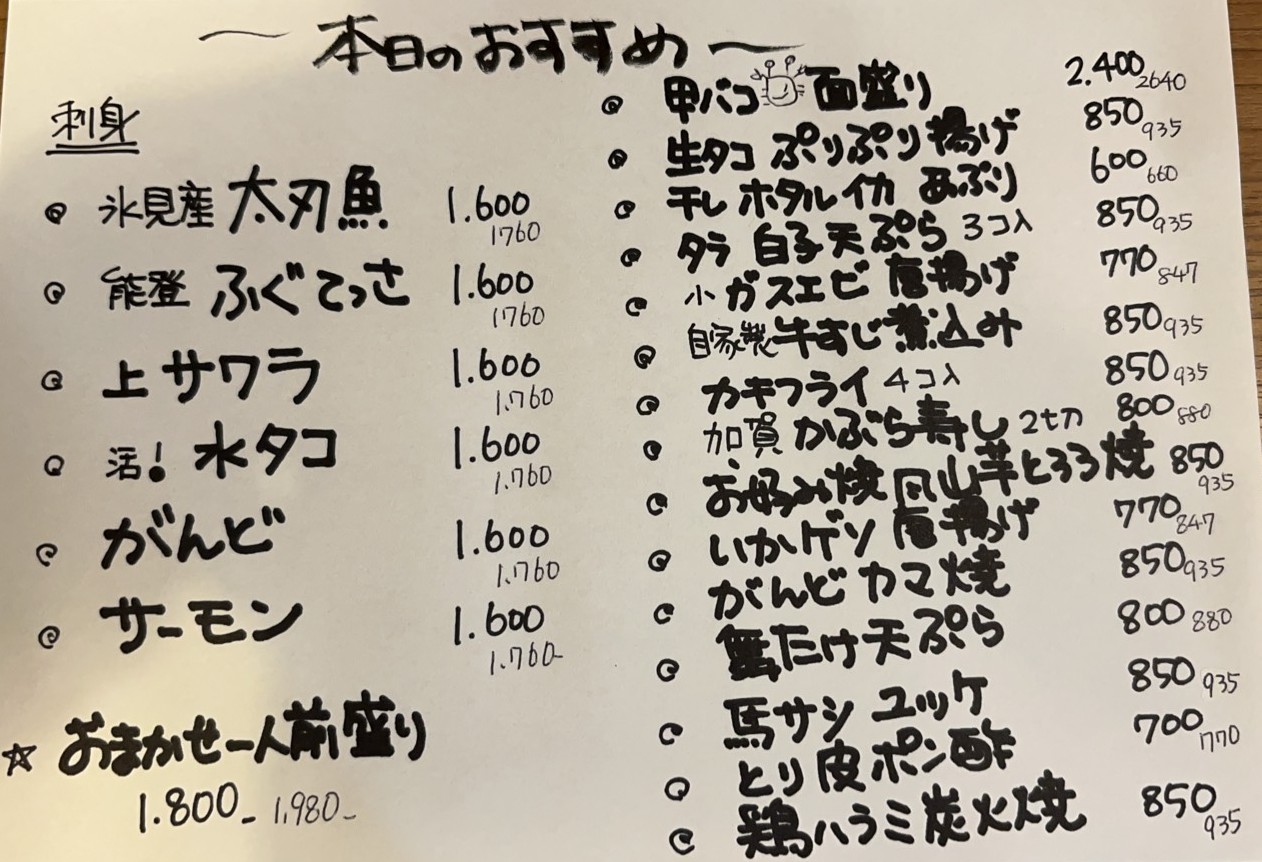 ~ 本日のおすすめ ~
刺身
氷見産 太刃魚 1.600 1760
能登 ふぐてっさ 1.600 1760
上サワラ 1.600 1.760
活! 水タコ 1.600 1.760
がんど 1.600 1.760
サーモン 1.600 1.760-
☆ おまかせ一人前盛り
1.800- 1,980-
甲バコ 面盛り 2.400 2640
生タコ ぷりぷり揚げ 850 935
干しホタルイカ あぶり 600 660
タラ 白子天ぷら 3コ入 850 935
小ガスエビ 唐揚げ 770 847
自家製 牛すじ煮込み 850 935
カキフライ 4コ入 850 935
加賀 かぶら寿し 2切 800 880
お好み焼風山芋とろろ焼 850 935
いかゲソ 唐揚げ 770 847
がんどカマ焼 850 935
舞たけ天ぷら 800 880
馬サシ ユッケ 850 935
とり皮ポン酢 700 770
鶏ハラミ炭火焼 850 935